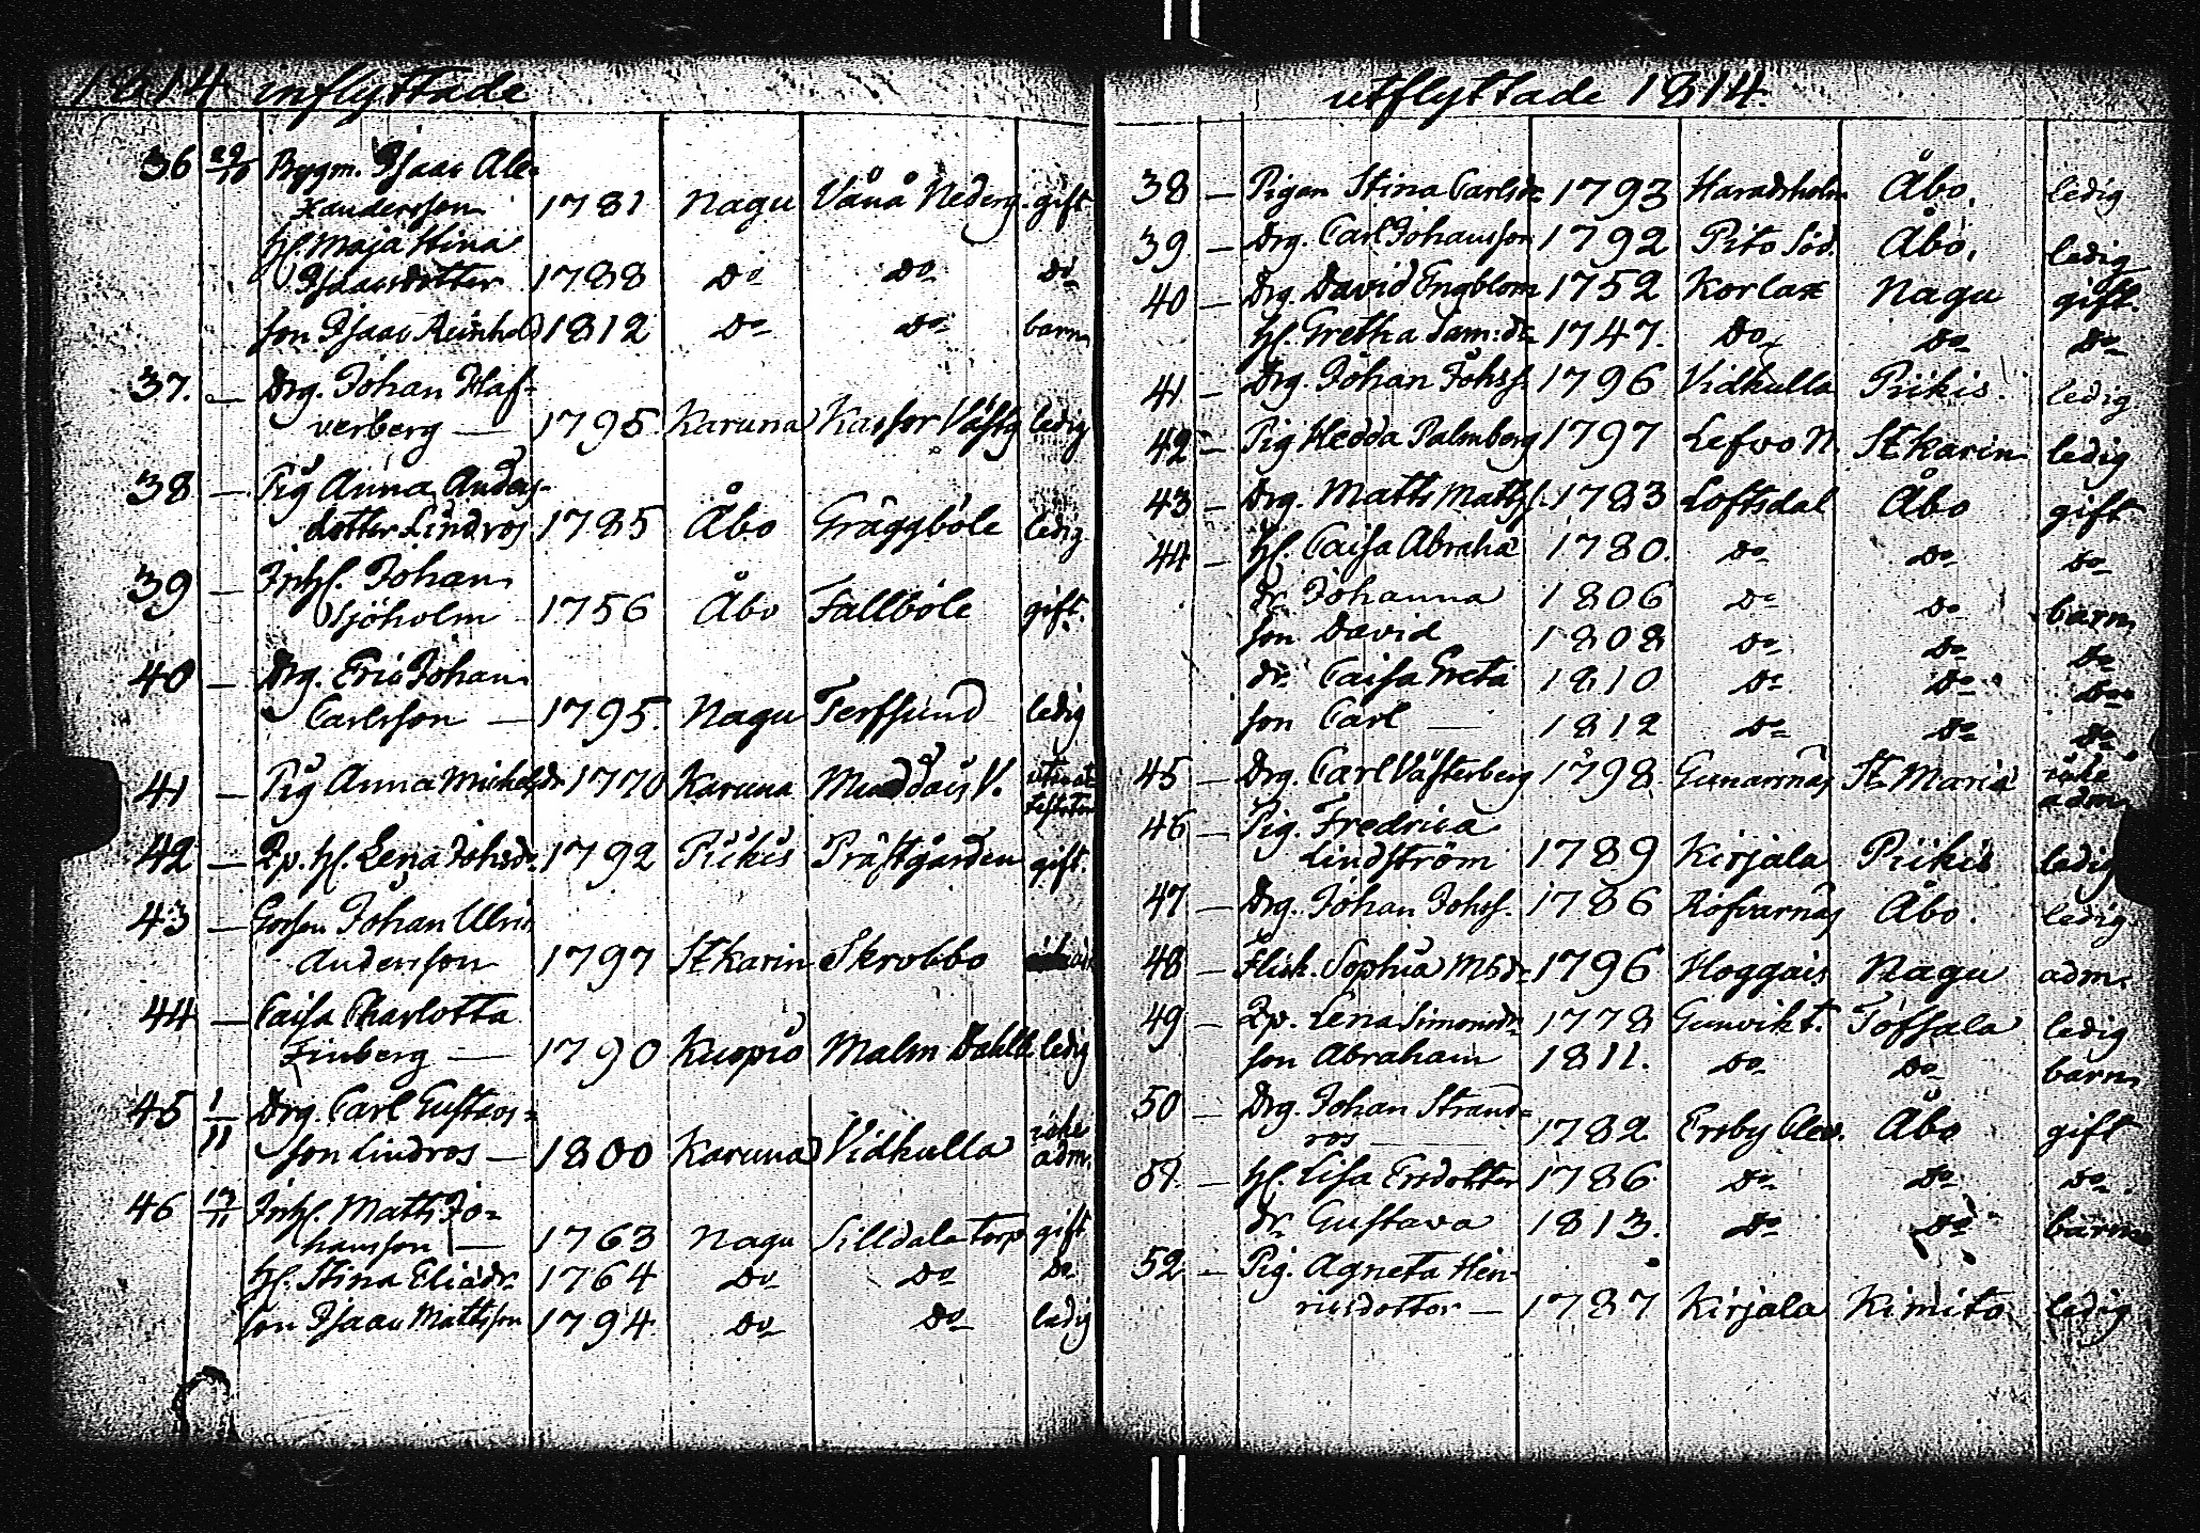 1814 inflyttade
36 29/10 Bygm. Isaac Ale-
xandersson 1781 Nagu Vånå Nederg. gift
H. Maja Stina
Isaacsdotter 1788 Do Do Do
son Isaac Reinhold 1812 Do Do barn
37. — Drg. Johan Haf-
verberg — 1795. Karuna Kassor Västg ledig
38 — Pig Anna Anders-
dotter Lindros 1785 Åbo Gräggböle ledig
39 — Inh. Johan
Sjöholm 1756 Åbo Fallböle gift.
40 — Drg. Eric Johan
Carlsson — 1795. Nagu Terfsund ledig
41 — Pig Anna Michelsdr 1770 Karuna Muddais V.
42 — Rp. H. Lena Johsdr 1792 Piikis Prästgården gift.
43 — Gossen Johan Ulric
Andersson 1797 St Karin Skrobbo
44 — Caisa Charlotta
Finberg — 1790 Kuopio Malm Dahlb. ledig
45 1/11 Drg. Carl Gustavs-
son Lindros — 1800 Karuna Vidkulla icke adm.
46 17/11 Inh. Matts Jo-
hansson — 1763 Nagu Silldala torp gift
H. Stina Eliædr. 1764 Do Do Do
son Isaac Mattsson 1794. Do Do ledig
utflyttade 1814.
38 — Pigan Stina Carlsdr 1793 Haradsholm Åbo. ledig
39 — Drg. Carl Johansson 1792 Pito Söd. Åbo. ledig
40 — Drg. David Engblom 1752 Korlax Nagu gift.
H. Gretha Sam:dr 1747. Do Do Do
41 — Drg. Johan Johss. 1796 Vidkulla Piikis. ledig
42 — Pig Hedda Palmberg 1797 Lefvo N. St Karin ledig
43 — Drg. Matts Mattss. 1783 Loftsdal Åbo gift
44 — H. Caisa Abrahā 1780. Do Do Do
dr. Johanna 1806 Do Do barn
son David 1808 Do Do Do
dr. Caisa Greta 1810 Do Do Do
son Carl — 1812 Do Do Do
45 — Drg. Carl Västerberg 1798 Gunnarnäs St Mariæ icke adm.
46 — Pig. Fredrica
Lindström 1789 Kirjala Piikis ledig
47 — Drg. Johan Johss. 1786 Röfvarnäs Åbo. ledig.
48 — Flick. Sophia Mbdr 1796 Hoggais Nagu adm.
49 — Rp. Lena Simonsdr 1778 Gunvikt. Töfsala ledig
son Abraham 1811. Do Do barn
50 — Drg. Johan Strand-
ros — 1782 Ersby Clev. Åbo gift
51. — H. Lisa Ersdotter 1786 Do Do Do
dr. Gustava 1813. Do Do barn
52 — Pig. Agneta Hen-
ricsdotter — 1787 Kirjala Kimito ledig